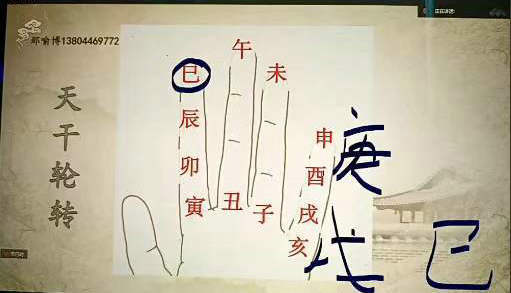 正在讲话:
郑喻博13804469772
天干轮转
午
巳
未
辰
申
卯
酉
寅
丑
子
戌
亥
庚
戊
巳